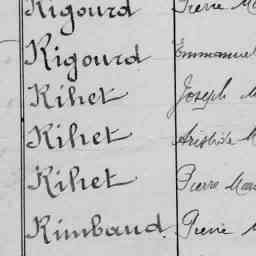 Rigourd Pierre Ma
Rigourd Emmanuel
Rihet Joseph M
Rihet Aristide M
Rihet Pierre Mar
Rimbaud Pierre M